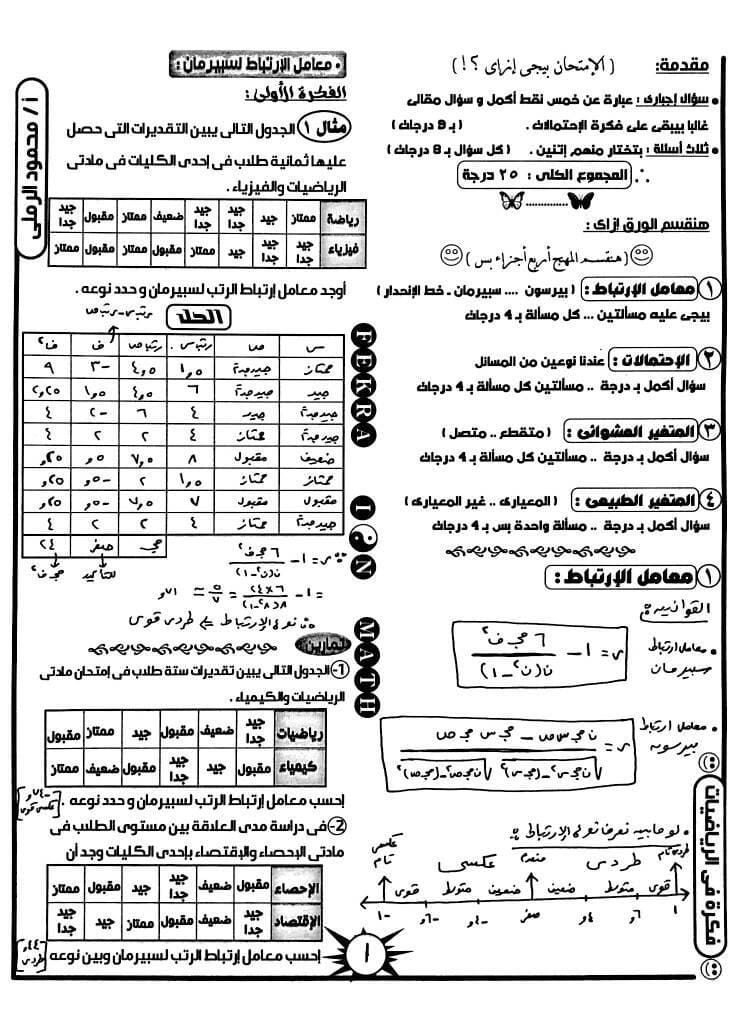 مقدمة: (الإمتحان بيجى إزاى ؟!)
• سؤال إجبارى: عبارة عن خمس نقط أكمل و سؤال مقالى
غالبا بيبقى على فكرة الإحتمالات. (بـ 9 درجات)
• ثلاث أسئلة: بتختار منهم إتنين. (كل سؤال بـ 8 درجات)
∴ المجموع الكلى: ٢٥ درجة
هنقسم الورق إزاى:
(هنقسم المهج أربع أجزاء بس)
١ معامل الإرتباط: (بيرسون .... سبيرمان - خط الإنحدار)
بيجى عليه مسألتين ... كل مسألة بـ 4 درجات
٢ الإحتمالات: عندنا نوعين من المسائل
سؤال أكمل بـ درجة .. مسألتين كل مسألة بـ 4 درجات
٣ المتغير العشوائى: (متقطع .. متصل)
سؤال أكمل بـ درجة .. مسألتين كل مسألة بـ 4 درجات
٤ المتغير الطبيعى: (المعيارى .. غير المعيارى)
سؤال أكمل بـ درجة .. مسألة واحدة بس بـ 4 درجات
١ معامل الإرتباط:
القوانين:
• معامل ارتباط سبيرمان
ر = ١ - ٦ مجـ ف٢ / ن(ن٢ - ١)
• معامل ارتباط بيرسون
ر = ن مجـ س ص - مجـ س مجـ ص / √ن مجـ س٢ - (مجـ س)٢ √ن مجـ ص٢ - (مجـ ص)٢
• لو حابين نعرف نوع الإرتباط:
عكسى تام عكسى منعدم طردى طردى تام
قوى متوسط ضعيف ضعيف متوسط قوى
-١ -٦و -٤و صفر ٤و ٦و ١
• معامل الإرتباط لسبيرمان:
الفكرة الأولى:
مثال ١ الجدول التالى يبين التقديرات التى حصل
عليها ثمانية طلاب فى إحدى الكليات فى مادتى
الرياضيات والفيزياء.
رياضة ممتاز جيد جيد جدا جيد جدا ضعيف ممتاز مقبول جيد جدا
فيزياء جيد جدا جيد جدا جيد ممتاز مقبول ممتاز مقبول ممتاز
أوجد معامل إرتباط الرتب لسبيرمان و حدد نوعه.
الحل
رتب س - رتب ص
س ص رتب س رتب ص ف ف٢
ممتاز جيد جدا ١,٥ ٤,٥ -٣ ٩
جيد جيد جدا ٦ ٤,٥ ١,٥ ٢,٢٥
جيد جدا جيد ٤ ٦ -٢ ٤
جيد جدا ممتاز ٤ ٢ ٢ ٤
ضعيف مقبول ٨ ٧,٥ ٥و ٢٥و
ممتاز ممتاز ١,٥ ٢ -٥و ٢٥و
مقبول مقبول ٧ ٧,٥ -٥و ٢٥و
جيد جدا ممتاز ٤ ٢ ٢ ٤
مجـ صفر ٢٤
للتأكيد مجـ ف٢
∵ ر = ١ - ٦ مجـ ف٢ / ن(ن٢ - ١)
= ١ - ٦×٢٤ / ٨(٨٢ - ١) = ٥/٧ ≃ ٧١و
∴ نوع الإرتباط ⇐ طردى قوى
تمارين:
1- الجدول التالى يبين تقديرات ستة طلاب فى إمتحان مادتى
الرياضيات والكيمياء.
رياضيات جيد جدا ضعيف مقبول جيد ممتاز مقبول
كيمياء مقبول جيد جيد جدا مقبول ضعيف ممتاز
إحسب معامل إرتباط الرتب لسبيرمان و حدد نوعه. [-٧٤و عكسى قوى]
2- فى دراسة مدى العلاقة بين مستوى الطلاب فى
مادتى الإحصاء والإقتصاد بإحدى الكليات وجد أن
الإحصاء مقبول ضعيف جيد جدا جيد مقبول ممتاز
الإقتصاد جيد جدا ضعيف مقبول ممتاز جيد جيد جدا
إحسب معامل إرتباط الرتب لسبيرمان وبين نوعه [٤٤و طردى]
FEKRA IN MATH
أ/ محمود الرملى
فكرة فى الرياضيات
١